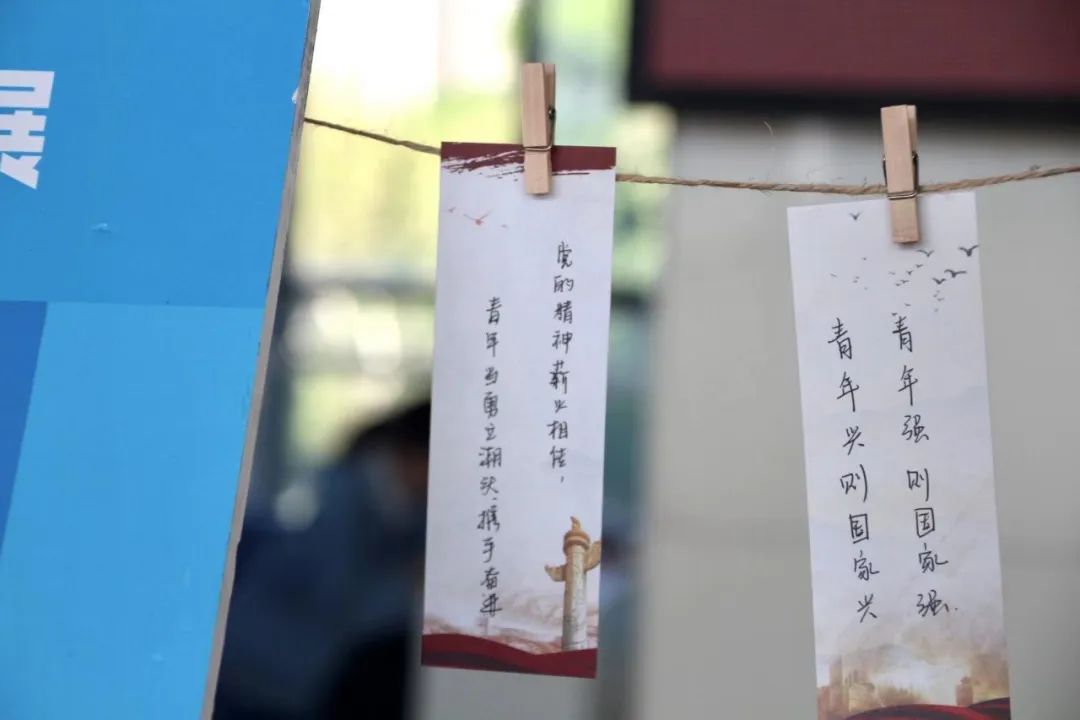 党的精神薪火相传，
青年当勇立潮头、携手奋进
青年强则国家强.
青年兴则国家兴